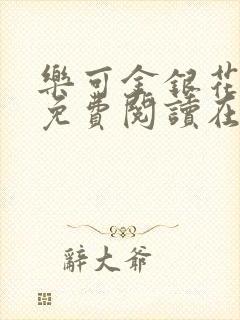 樂可金銀花
免費閱讀在
辭大爺